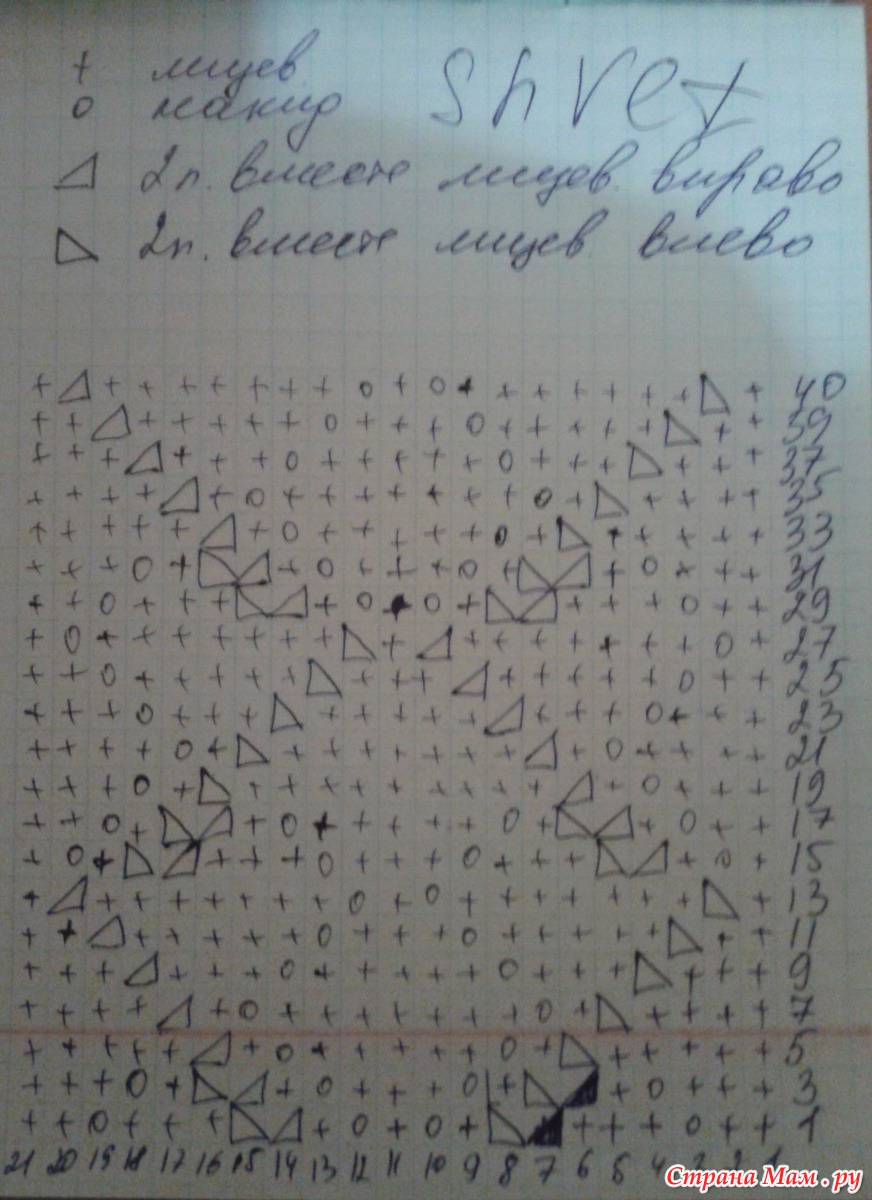 + лицев
o накид
Shvet
◿ 2п. вместе лицев. вправо
◺ 2п. вместе лицев влево
+ ◿ + + + + + + + o + o + + + + + + + ◺ + 40
+ + ◿ + + + + + o + + + o + + + + + ◺ + + 39
+ + + ◿ + + + o + + + + + o + + + ◺ + + + 37
+ + + + ◿ + o + + + + + + + o + ◺ + + + + 35
+ + + + + ◿ + o + + + + + o + ◺ + + + + + 33
+ + + o + ◺ ◿ + o + + + o + ◺ ◿ + o + + + 31
+ + o + + + ◺ ◿ + o + o + ◺ ◿ + + + o + + 29
+ o + + + + + + + ◺ + ◿ + + + + + + + o + 27
+ + o + + + + + ◺ + + + ◿ + + + + + o + + 25
+ + + o + + + ◺ + + + + + ◿ + + + o + + + 23
+ + + + o + ◺ + + + + + + + ◿ + o + + + + 21
+ + + o + ◺ + + + + + + + + + ◿ + o + + + 19
+ + o + ◺ ◿ + o + + + + + o + ◺ ◿ + o + + 17
+ o + ◺ ◿ + + + o + + + o + + + ◺ ◿ + o + 15
+ ◿ + + + + + + + o + o + + + + + + + ◺ + 13
+ + ◿ + + + + + o + + + o + + + + + ◺ + + 11
+ + + ◿ + + + o + + + + + o + + + ◺ + + + 9
+ + + + ◿ + o + + + + + + + o + ◺ + + + + 7
+ + + + + ◿ + o + + + + + o + ◺ + + + + + 5
+ + + o + ◺ ◿ + o + + + o + ◺ ◿ + o + + + 3
+ + o + + + ◺ ◿ + o + o + ◺ ◿ + + + o + + 1
21 20 19 18 17 16 15 14 13 12 11 10 9 8 7 6 5 4 3 2 1
Страна Мам.ру